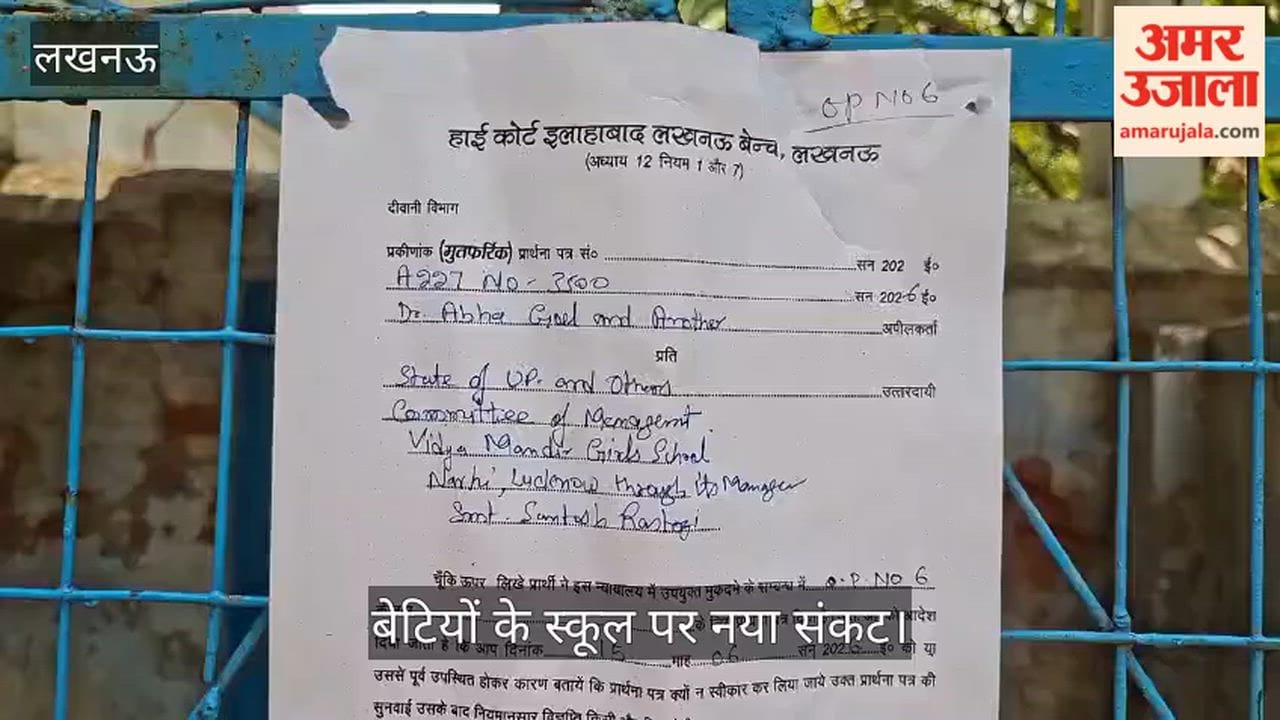 लखनऊ
अमर
उजाला
amarujala.com
O-P NO 6
हाई कोर्ट इलाहाबाद लखनऊ बेन्च, लखनऊ
(अध्याय 12 नियम 1 और 7)
दीवानी विभाग
प्रकीणांक (मुतफर्रिक) प्रार्थना पत्र सं० सन 202 ई०
A227 No - 3500 सन 2026 ई०
Dr. Abha Goel and Another अपीलकर्ता
प्रति
State of U.P. and Others उत्तरदायी
Committee of Management
Vidya Mandir Girls School
Narhi, Lucknow through its Manager
Smt. Santosh Rastogi
चूँकि ऊपर लिखे प्रार्थी ने इस न्यायालय में उपर्युक्त मुकदमे के सम्बन्ध में O.P. NO 6
आदेश
बेटियों के स्कूल पर नया संकट।
दिया जाता है कि आप दिनांक 15 माह 06 सन 202 ई० को या
उससे पूर्व उपस्थित होकर कारण बतायें कि प्रार्थना पत्र क्यों न स्वीकार कर लिया जाये उक्त प्रार्थना पत्र की
सुनवाई उसके बाद नियमानुसार